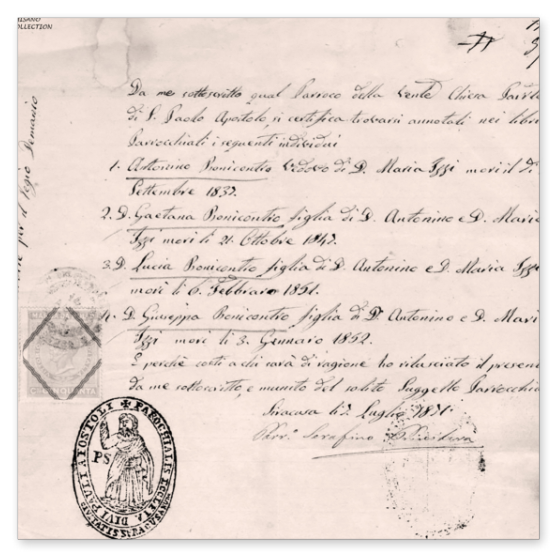 COLLECTION
Da me sottoscritto qual Parroco della Ven.le Chiesa Parro
di S. Paolo Apostolo, si certifica trovarsi annotati nei libri
Parrocchiali i seguenti individui
1. Antonino Bonicontro Vedovo di D. Maria Izzi morì il dì
Settembre 1837.
2. D. Gaetana Bonicontro figlia di D. Antonino e D. Maria
Izzi morì li 21. Ottobre 1847.
3. D. Lucia Bonicontro figlia di D. Antonino e D. Maria Izzi
morì li 6. Febbraro 1851.
4. D. Giuseppa Bonicontro figlia di D. Antonino e D. Mari
Izzi morì li 3. Gennaro 1852.
E perchè costi a chi sarà di ragione ho rilasciato il presen
Da me sottoscritto, e munito del solito Suggello Parrocchia
Siracusa li Luglio 1871.
Serafino
per il Regio Demanio
PAROCHIALIS ECCLESIA DIVI PAULI APOSTOLI
PS